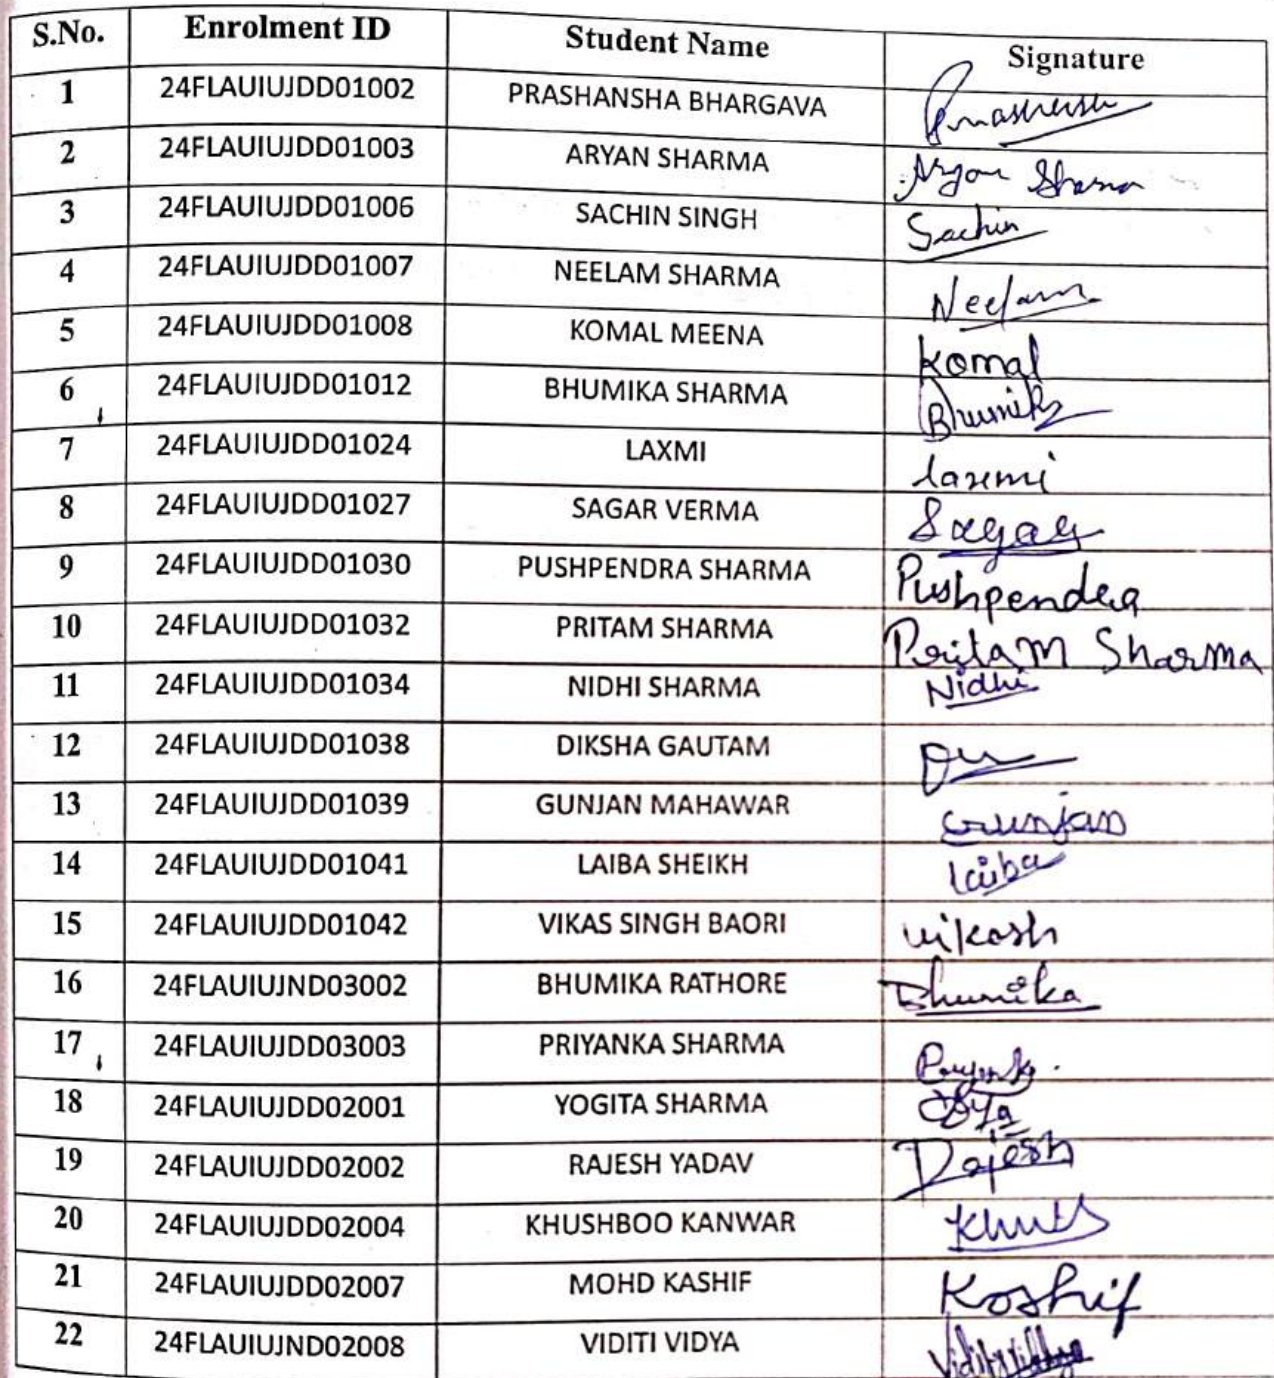 S.No. Enrolment ID Student Name Signature
1 24FLAUIUJDD01002 PRASHANSHA BHARGAVA
2 24FLAUIUJDD01003 ARYAN SHARMA Aryan Sharma
3 24FLAUIUJDD01006 SACHIN SINGH Sachin
4 24FLAUIUJDD01007 NEELAM SHARMA Neelam
5 24FLAUIUJDD01008 KOMAL MEENA Komal
6 24FLAUIUJDD01012 BHUMIKA SHARMA Bhumika
7 24FLAUIUJDD01024 LAXMI laxmi
8 24FLAUIUJDD01027 SAGAR VERMA Sagar
9 24FLAUIUJDD01030 PUSHPENDRA SHARMA Pushpendra
10 24FLAUIUJDD01032 PRITAM SHARMA Pritam Sharma
11 24FLAUIUJDD01034 NIDHI SHARMA Nidhi
12 24FLAUIUJDD01038 DIKSHA GAUTAM
13 24FLAUIUJDD01039 GUNJAN MAHAWAR Gunjan
14 24FLAUIUJDD01041 LAIBA SHEIKH laiba
15 24FLAUIUJDD01042 VIKAS SINGH BAORI vikash
16 24FLAUIUJND03002 BHUMIKA RATHORE Bhumika
17 24FLAUIUJDD03003 PRIYANKA SHARMA
18 24FLAUIUJDD02001 YOGITA SHARMA
19 24FLAUIUJDD02002 RAJESH YADAV Rajesh
20 24FLAUIUJDD02004 KHUSHBOO KANWAR
21 24FLAUIUJDD02007 MOHD KASHIF Kashif
22 24FLAUIUJND02008 VIDITI VIDYA